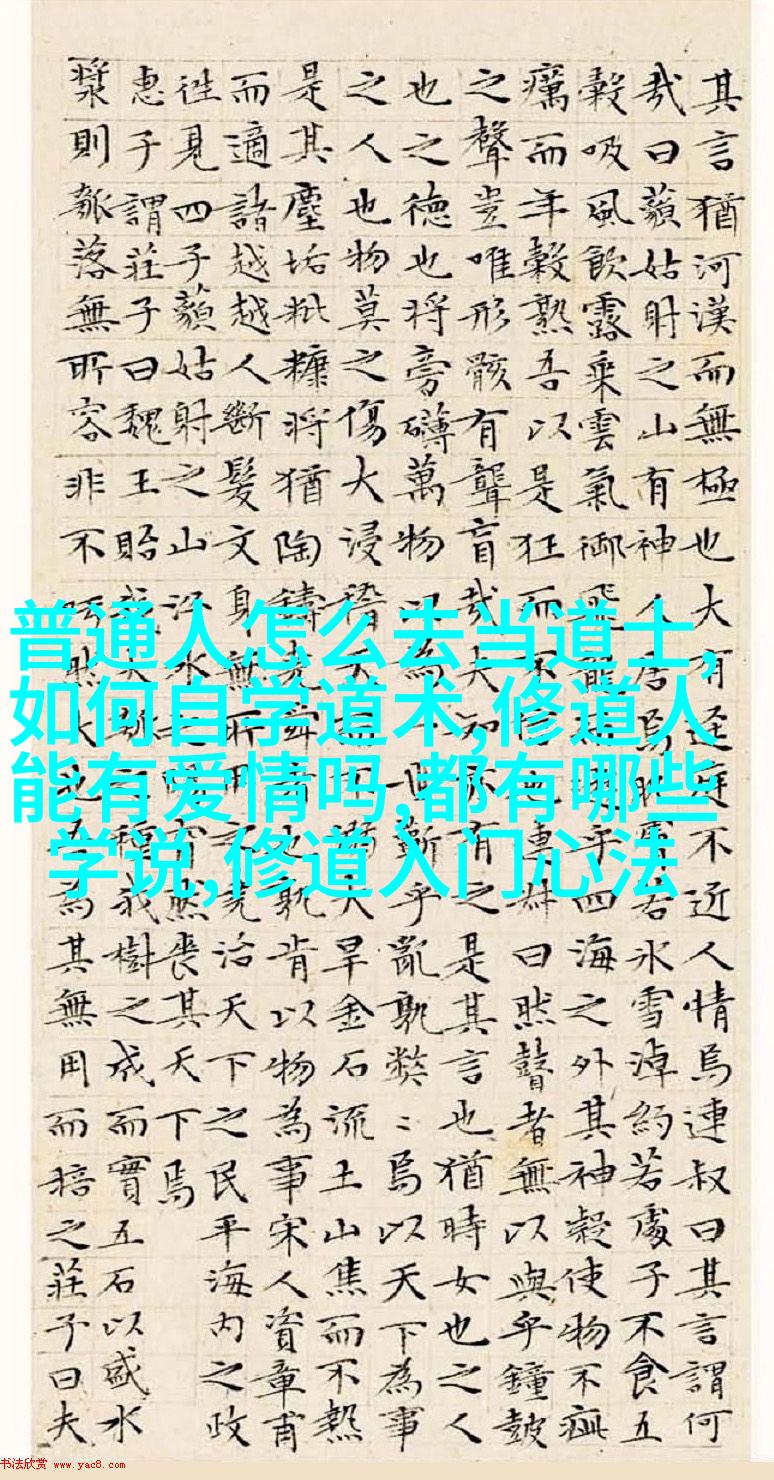 其言猶河漢而無極也大有迳庭不近人情焉連叔曰其言謂何
哉曰藐姑射之山有神人居焉肌膚若氷雪淖約若處子不食五
穀吸風飲露乘雲氣御飛龍乎四海之外其神凝使物不疵
癘而年穀熟吾以是狂而不信也連叔曰然瞽者無以與乎鐘鼓
之聲豈唯形骸有聾盲哉夫知亦有之是其言也猶時女也之人
也之德也将旁礴萬物以為世蘄乎亂孰弊〻焉以天下為事
之人也物莫之傷大浸稽天而不溺大旱金石流土山焦而不熱
是其塵垢粃糠将猶陶鑄堯舜者也孰肯以物為事宋人資章甫
而適諸越越人斷髮文身無所用之堯治天下之民平海内之政
往見四子藐姑射之山汾水之陽窅然喪其天下焉
惠子謂莊子曰魏王貽我大瓠之種我樹之成而實五石以盛水
漿則瓠落無所容非不呺然大也吾為其無用而掊之莊子曰夫
普通人怎么去当道士,
如何自学道术,修道人
能有爱情吗,都有哪些
学说,修道入门心法
书法欣赏 www.yac8.com